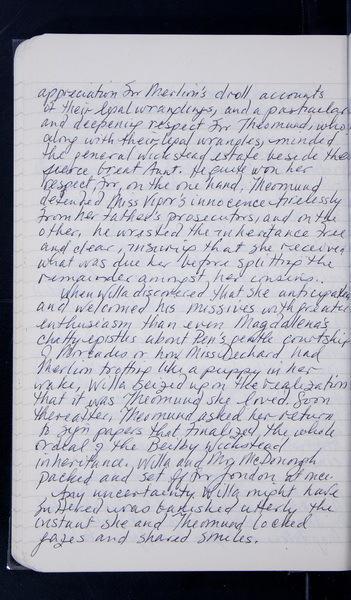 appreciation for Merlin's droll accounts
of their legal wranglings, and a particular
and deepening respect for Theomund, who,
along with their legal wrangles, minded
the general Wickstead estate beside their
fierce Great Aunt. He quite won her
respect, for, on the one hand, Theomund
defended Miss Vipor's innocence tirelessly
from her father's prosecutors, and on the
other, he wrested the inheritance free
and clear, insuring that she received
what was due her before splitting the
remainder amongst her cousins.
When Willa discovered that she anticipated
and welcomed his missives with greater
enthusiasm than even Magdalena's
chatty epistles about Pen's gentle courtship
of Mercades or how Miss Dechard had
Merlin trotting like a puppy in her
wake, Willa seized upon the realization
that it was Theomund she loved. Soon
thereafter, Theomund asked her return
to sign papers that finalized the whole
ordeal of the Beilby Wickstead
inheritance. Willa and Mrs McDonough
packed and set off for London at once.
Any uncertainty Willa might have
suffered was banished utterly the
instant she and Theomund locked
gazes and shared smiles.